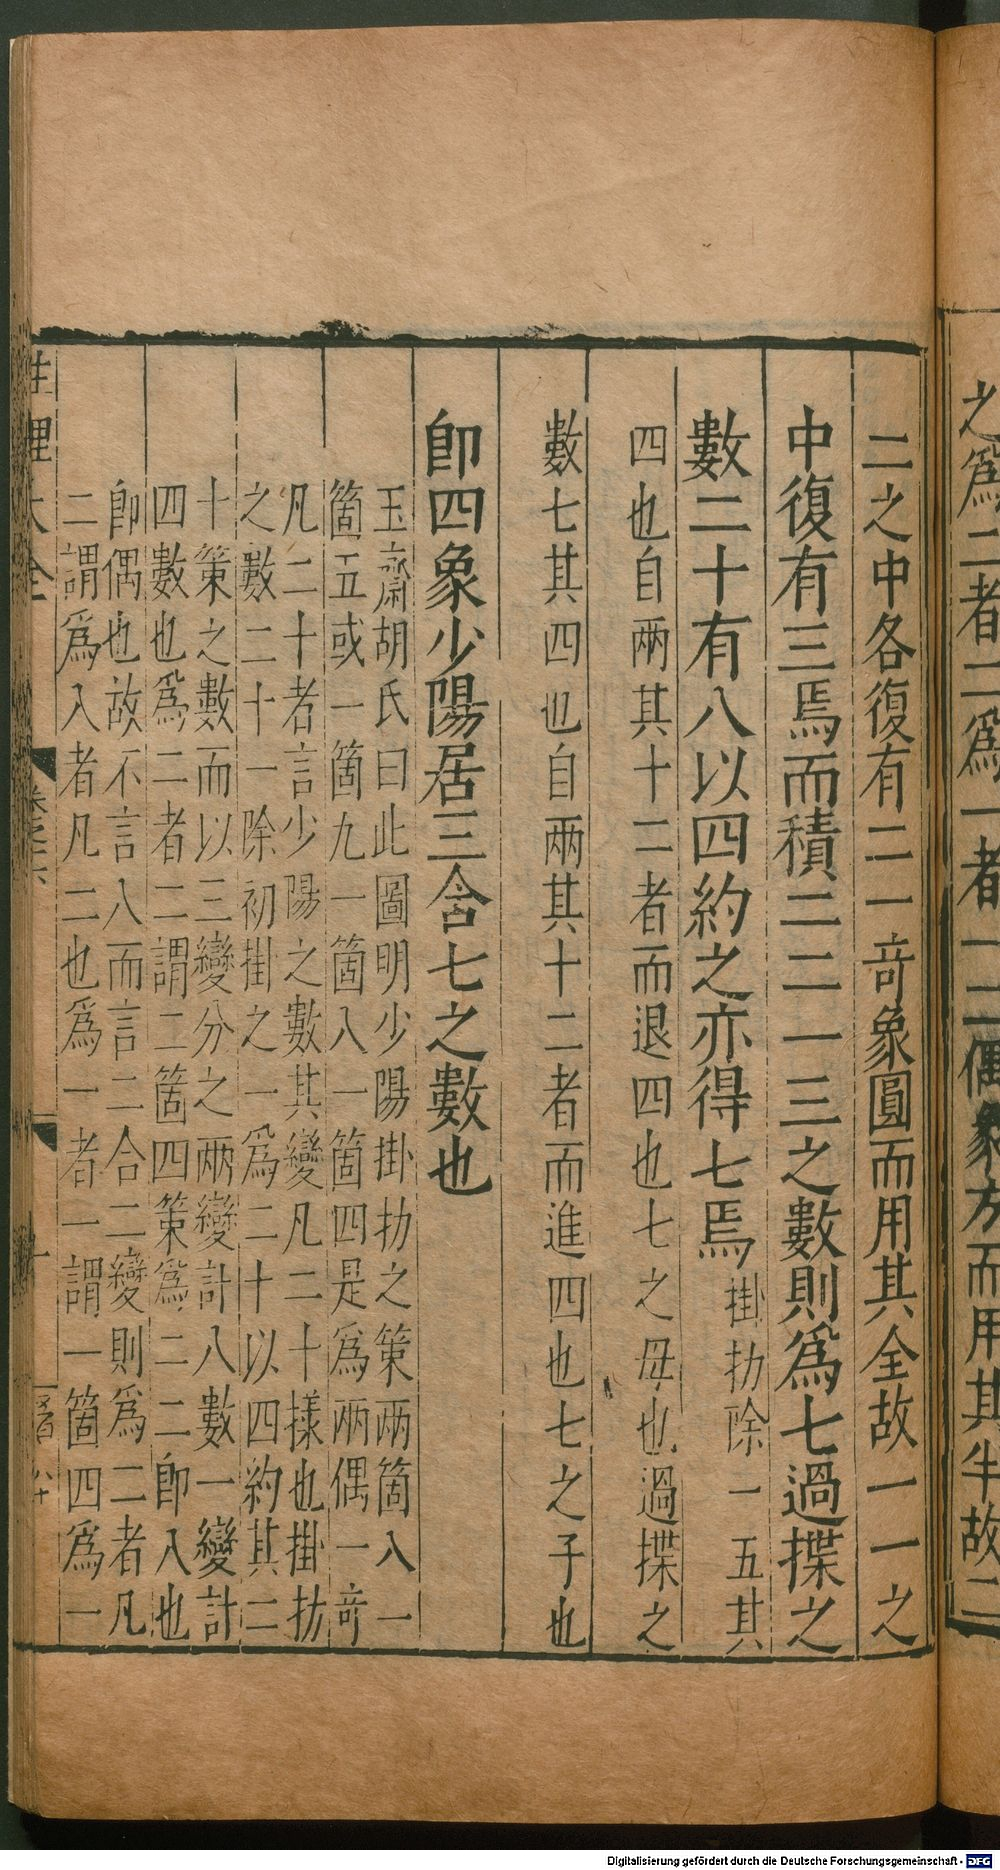 之爲二者二爲一者一二偶象方而用其半故二
二之中各復有二一奇象圓而用其全故一一之
中復有三焉而積二二一三之數則爲七過揲之
數二十有八以四約之亦得七焉掛扐除一五其
四也自兩其十二者而退四也七之母也過揲之
數七其四也自兩其十二者而進四也七之子也
卽四象少陽居三含七之數也
玉齋胡氏曰此圖明少陽掛扐之策兩箇八一
箇五或一箇九一箇八一箇四是爲兩偶一奇
凡二十者言少陽之數其變凡二十㨾也掛扐
之數二十一除初掛之一爲二十以四約其二
十策之數而以三變分之兩變計八數一變計
四數也爲二者二謂二箇四策爲二二卽八也
卽偶也故不言八而言二合二變則爲二者凡
二謂爲八者凡二也爲一者一謂一箇四爲一
性理大全
Digitalisierung gefördert durch die Deutsche Forschungsgemeinschaft - DFG